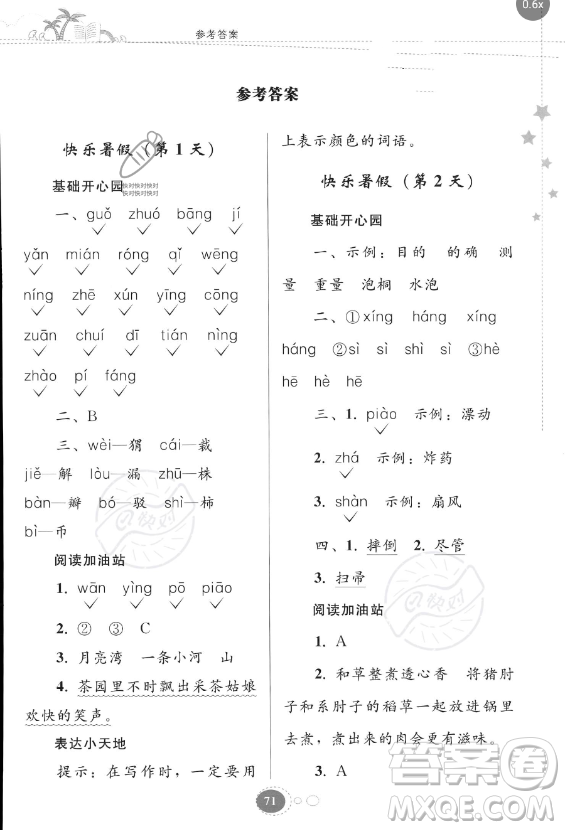 参考答案
0.6x
参考答案
快乐暑假（第1天）
基础开心园
一、guǒ zhuó bāng jí
yǎn mián róng qǐ wēng
níng zhē xún yīng cōng
zuān chuí dī tián nìng
zhào pí fáng
二、B
三、wèi—猬 cái—裁
jiě—解 lòu—漏 zhū—株
bàn—瓣 bó—驳 shì—柿
bì—币
阅读加油站
1. wān yìng pō piāo
2. ② ③ C
3. 月亮湾 一条小河 山
4. 茶园里不时飘出采茶姑娘
欢快的笑声。
表达小天地
提示：在写作时，一定要用
上表示颜色的词语。
快乐暑假（第2天）
基础开心园
一、示例：目的 的确 测
量 重量 泡桐 水泡
二、①xíng háng xíng
háng ②sì sì shì sì ③hè
hē hè hē
三、1. piào 示例：漂动
2. zhá 示例：炸药
3. shàn 示例：扇风
四、1. 摔倒 2. 尽管
3. 扫帚
阅读加油站
1. A
2. 和草整煮透心香 将猪肘
子和系肘子的稻草一起放进锅里
去煮，煮出来的肉会更有滋味。
3. A
71
快对快对快对
快对快对快对
@快对
@快对
答案圈
MXQE.COM